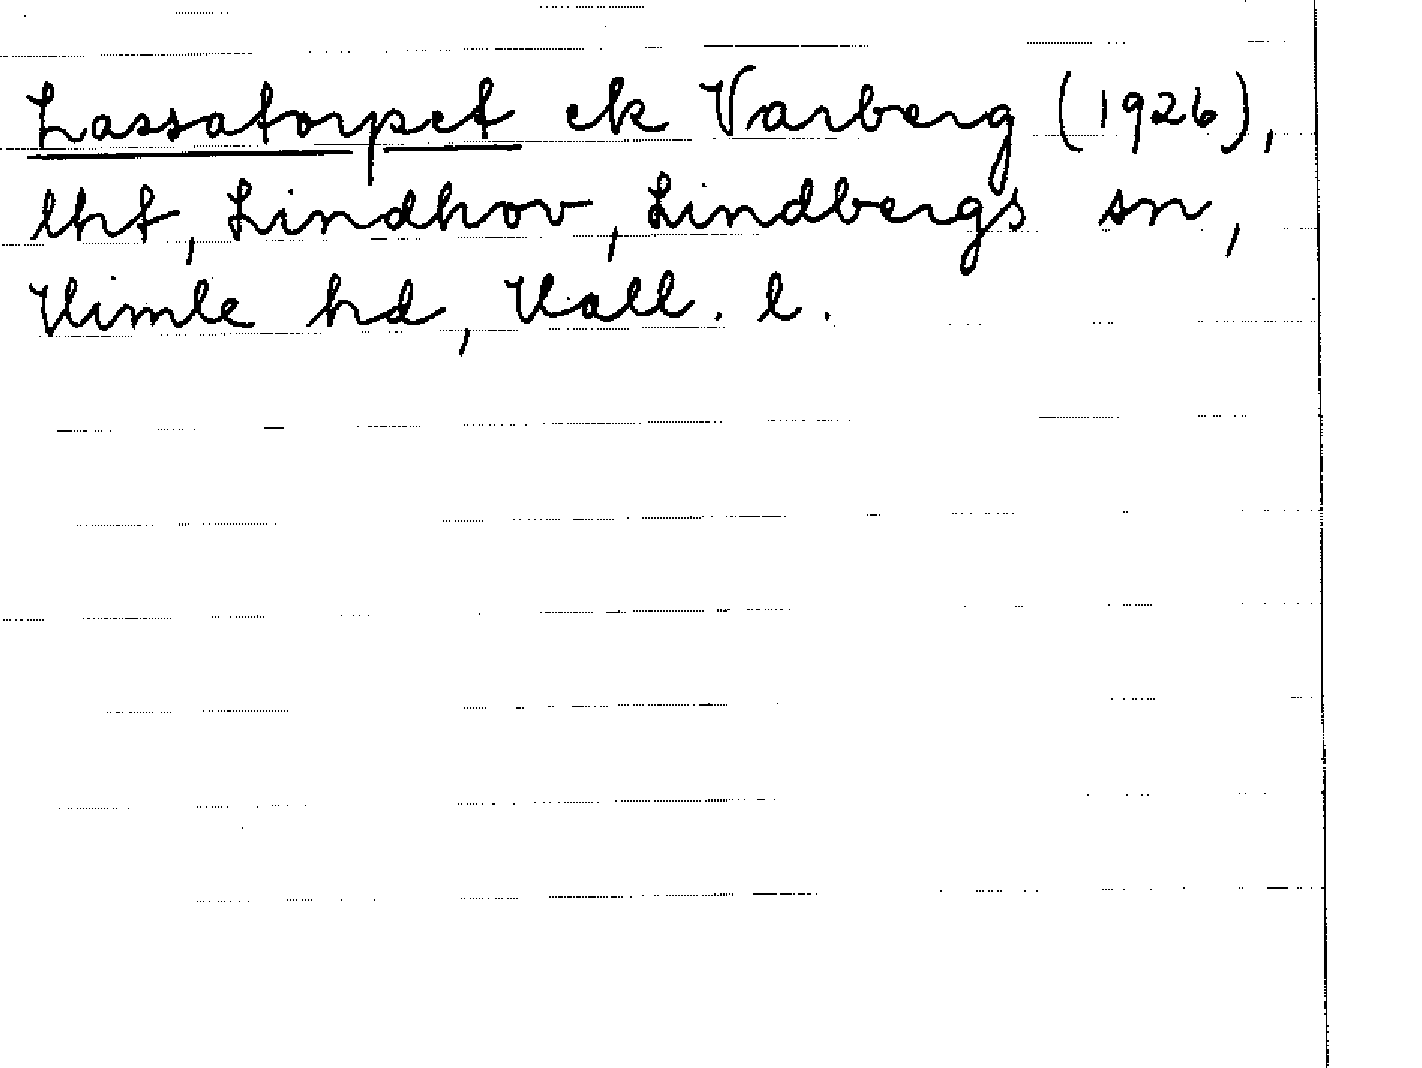 Lassatorpet ek Varberg (1926),
lht, Lindhov, Lindbergs sn,
Himle hd, Hall. l.